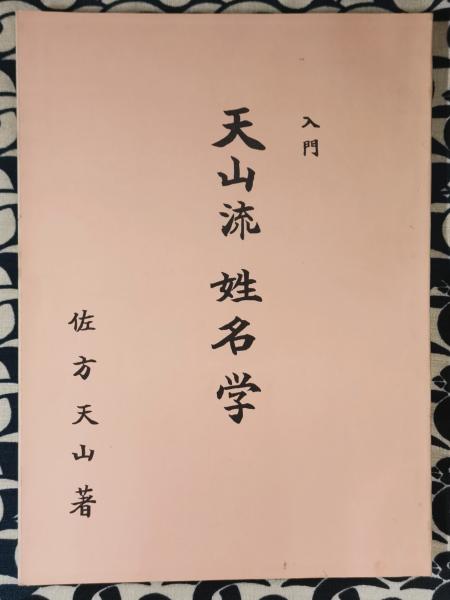 入門
天山流 姓名学
佐方天山著